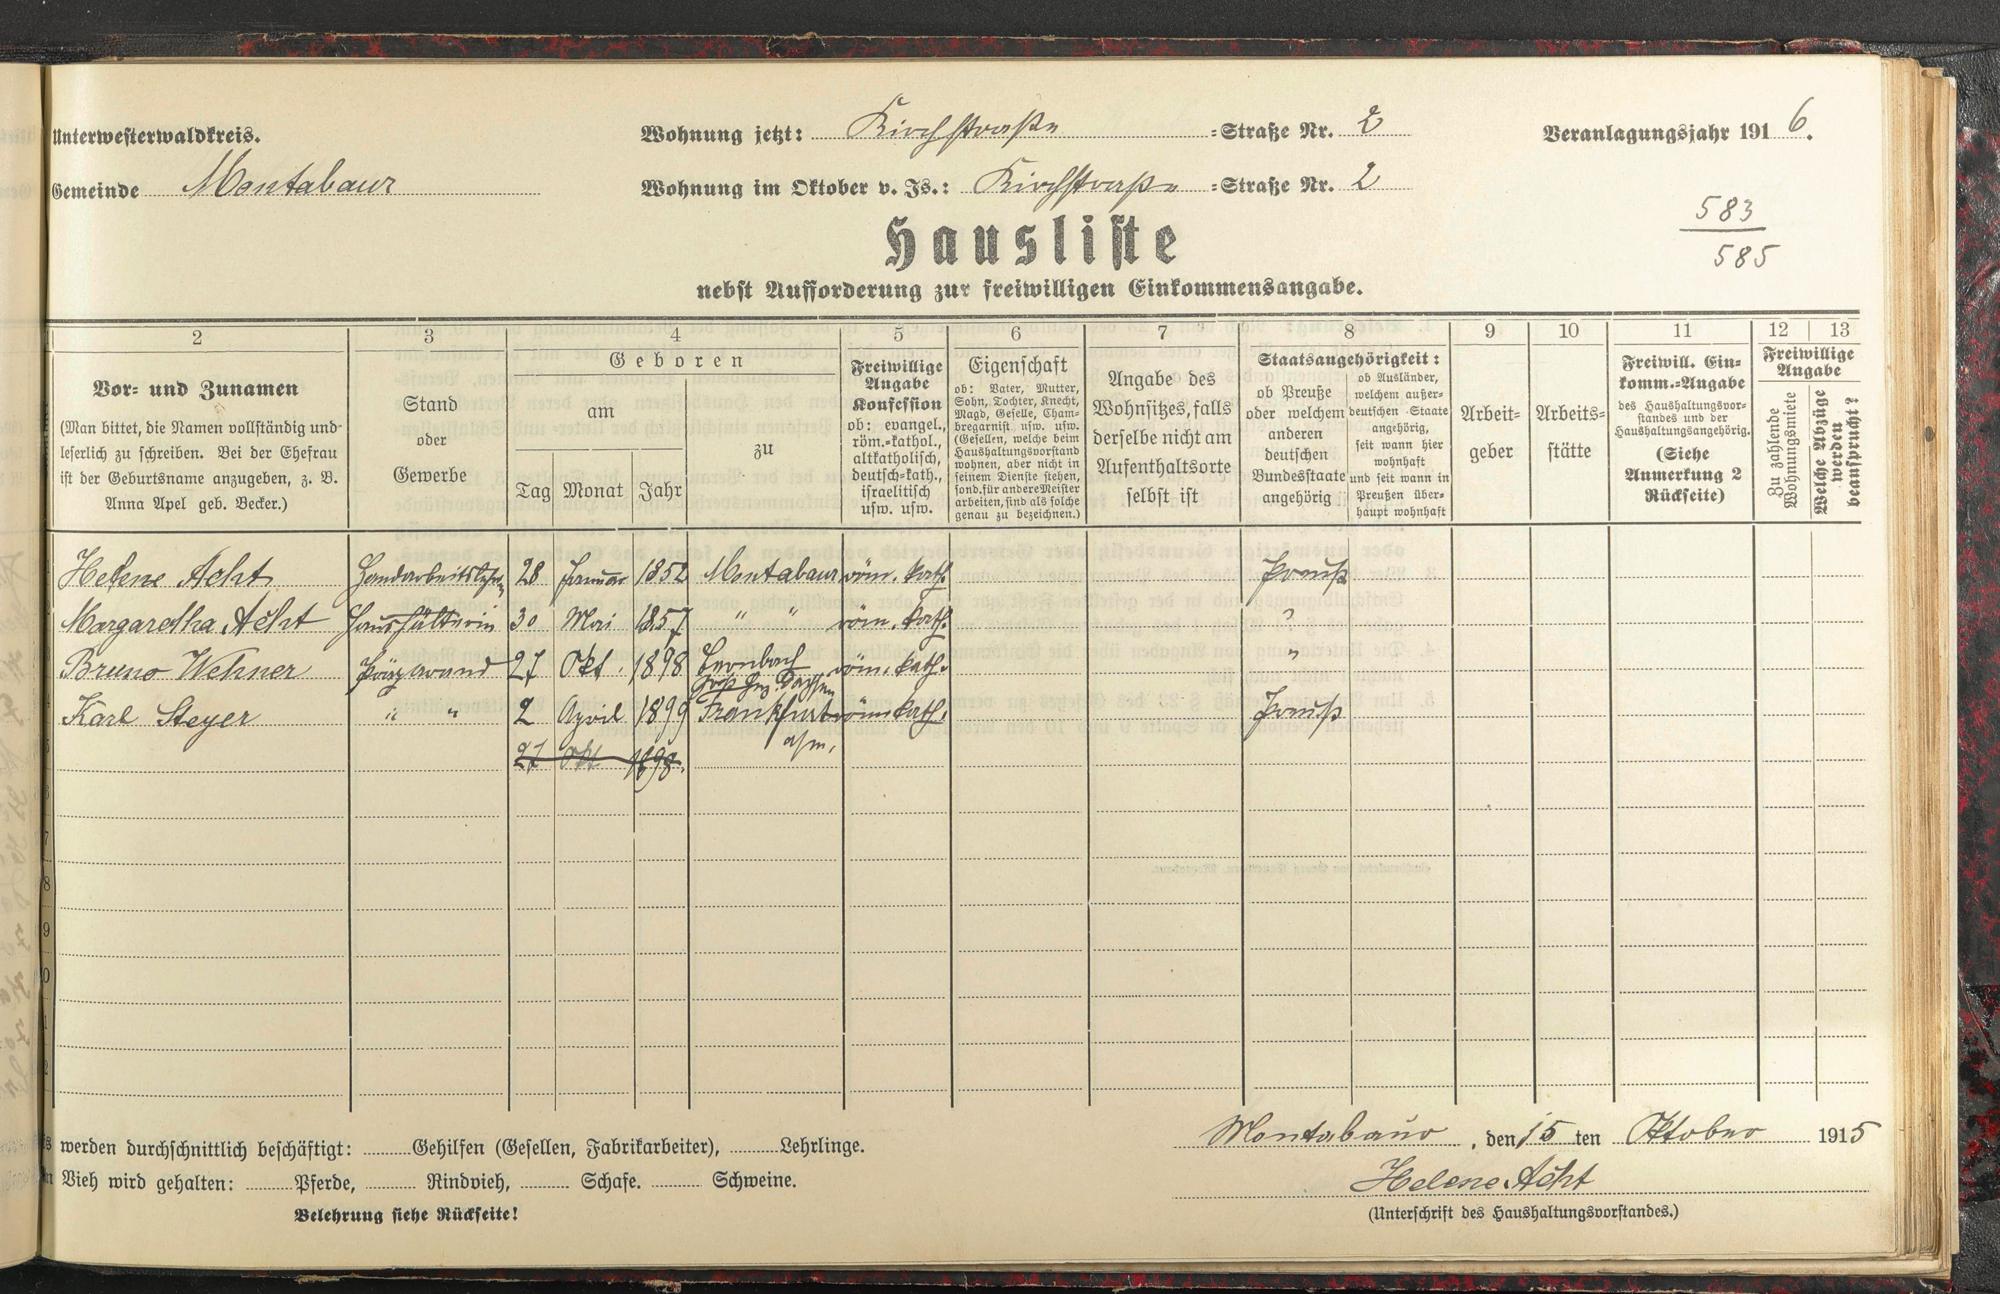 Unterwesterwaldkreis.
Wohnung jetzt: Kirchstraße =Straße Nr. 2
Veranlagungsjahr 1916.
Gemeinde Montabaur
Wohnung im Oktober v. Js.: Kirchstraße =Straße Nr. 2
583
585
Hausliste
nebst Aufforderung zur freiwilligen Einkommensangabe.
2 3 4 5 6 7 8 9 10 11 12 13
Vor- und Zunamen
(Man bittet, die Namen vollständig und
leserlich zu schreiben. Bei der Ehefrau
ist der Geburtsname anzugeben, z. B.
Anna Apel geb. Becker.)
Stand
oder
Gewerbe
Geboren
am
Tag Monat Jahr
zu
Freiwillige
Angabe
Konfession
ob: evangel.,
röm.-kathol.,
altkatholisch,
deutsch-kath.,
israelitisch
usw. usw.
Eigenschaft
ob: Vater, Mutter,
Sohn, Tochter, Knecht,
Magd, Geselle, Cham-
bregarnist usw. usw.
(Gesellen, welche beim
Haushaltungsvorstand
wohnen, aber nicht in
seinem Dienste stehen,
sond. für andere Meister
arbeiten, sind als solche
genau zu bezeichnen.)
Angabe des
Wohnsitzes, falls
derselbe nicht am
Aufenthaltsorte
selbst ist
Staatsangehörigkeit:
ob Preuße
oder welchem
anderen
deutschen
Bundesstaate
angehörig
ob Ausländer,
welchem außer-
deutschen Staate
angehörig,
seit wann hier
wohnhaft
und seit wann in
Preußen über-
haupt wohnhaft
Arbeit-
geber
Arbeits-
stätte
Freiwill. Ein-
komm.-Angabe
des Haushaltungsvor-
standes und der
Haushaltungsangehörig.
(Siehe
Anmerkung 2
Rückseite)
Freiwillige
Angabe
Zu zahlende
Wohnungsmiete
Welche Abzüge
werden
beansprucht?
Helene Acht Handarbeitslehrin 28 Januar 1852 Montabaur röm. kath. Preuß
Margaretha Acht Haushälterin 30 Mai 1857 " " röm. kath. "
Bruno Wehner 27 Okt. 1898 röm. kath. "
Karl Steyer " " 2 April 1899 Frankfurt röm. kath. Preuß
a/m.
27 Okt 1898.
7
8
9
0
1
2
werden durchschnittlich beschäftigt: Gehilfen (Gesellen, Fabrikarbeiter), Lehrlinge.
Vieh wird gehalten: Pferde, Rindvieh, Schafe. Schweine.
Belehrung siehe Rückseite!
Montabaur, den 15 ten Oktober 1915
Helene Acht
(Unterschrift des Haushaltungsvorstandes.)